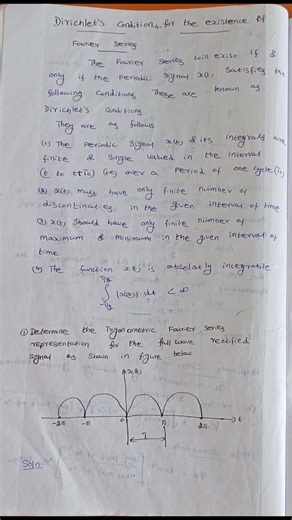 Dirichlet's Conditions for the existence of
Fourier Series
The Fourier Series will exist if &
only if the periodic signal x(t) satisfies the
following Conditions These are known as
Dirichlet's Conditions.
They are as follows
(1) The periodic Signal x(t) & its integrals are
finite & Single valued in the interval
(t to t+T₀) (or) over a period of one cycle (T₀)
(2) x(t) must have only finite number of
discontinuties in the given interval of time
(3) x(t) Should have only finite number of
maximum & minimum in the given interval of
time.
(4) The function x(t) is absolutly integrable
∫ |x(t)| dt < ∞
① Determine the Trignometric Fourier series
representation for the full wave rectified
signal as shown in figure below
x(t)
-2π -π 0 π 2π t
T
Soln: